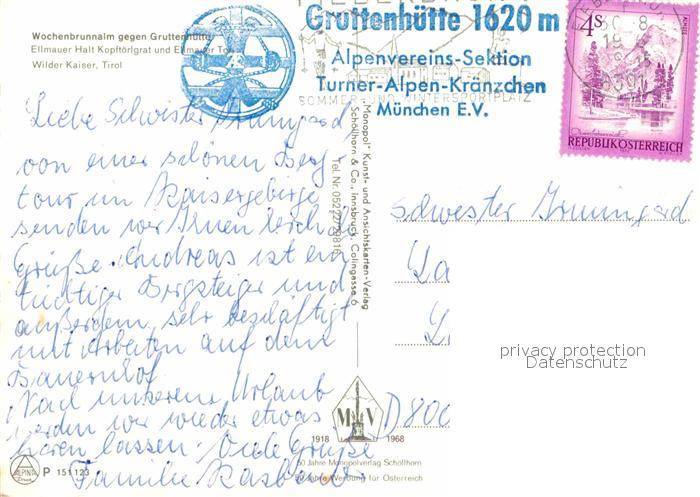 Wochenbrunnalm gegen Gruttenhütte
Ellmauer Halt Kopftörlgrat und Ellmauer Tor
Wilder Kaiser, Tirol
Gruttenhütte 1620 m
Alpenvereins-Sektion
Turner-Alpen-Kränzchen
München E.V.
SOMMER- UND WINTERSPORTPLATZ
4s
REPUBLIK ÖSTERREICH
Liebe Schwester Irmingard,
von einer schönen Berg-
tour im Kaisergebirge
senden wir Ihnen herzl.
Grüße. Andreas ist ein
tüchtiger Bergsteiger und
außerdem sehr beschäftigt
mit Arbeiten auf dem
Bauernhof
Nach unserem Urlaub
werden wir wieder etwas
hören lassen. Viele Grüße
Familie
Monopol Kunst- und Ansichtskarten-Verlag
Schöllhorn & Co., Innsbruck, Colingasse 6
Schwester Irmingard
La
D 800
privacy protection
Datenschutz
M V
1918 1968
50 Jahre Monopolverlag Schöllhorn
50 Jahre Werbung für Österreich
ALPINA
P 151 123